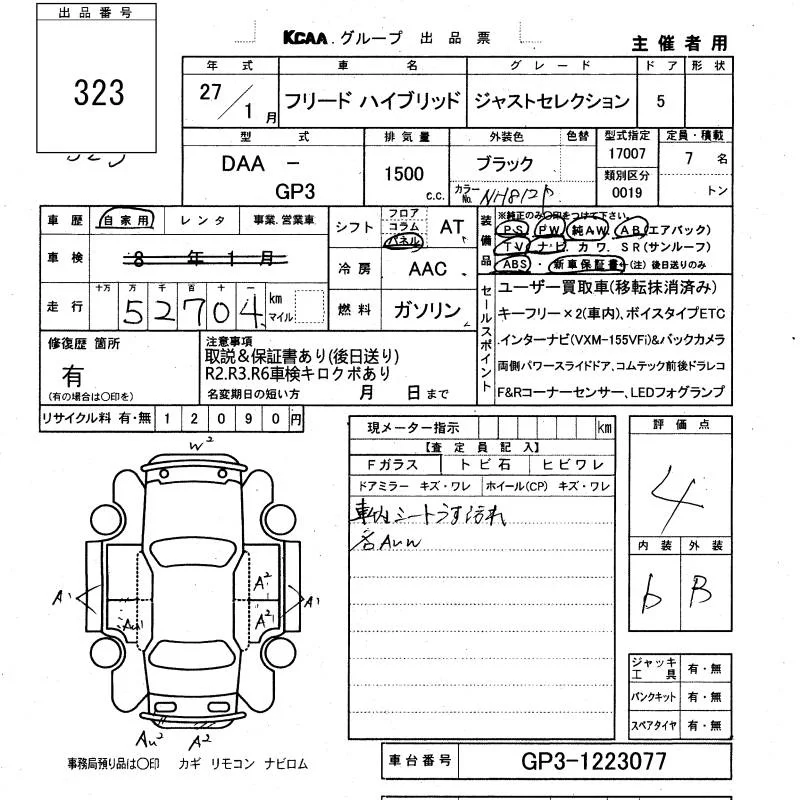 出品番号
323
KCAA.グループ 出品票
主催者用
年式 車名 グレード ドア 形状
27/1月 フリード ハイブリッド ジャストセレクション 5
型式 排気量 外装色 色替 型式指定 定員・積載
DAA - GP3 1500 c.c. ブラック 17007 7名
カラーNo. NH812P 類別区分 0019 トン
車歴 自家用 レンタ 事業.営業車
シフト フロア コラム パネル AT
装備品 ※純正のみ○印をつけて下さい。
PS PW 純AW AB(エアバック)
TV ナビ カワ SR(サンルーフ)
ABS・新車保証書 (注)後日送りのみ
車検 8年1月
冷房 AAC
走行 十万 万 千 百 十 一 km マイル
52704
燃料 ガソリン
セールスポイント
ユーザー買取車(移転抹消済み)
キーフリー×2(車内)、ボイスタイプETC
インターナビ(VXM-155VFi)&バックカメラ
両側パワースライドドア、コムテック前後ドラレコ
F&Rコーナーセンサー、LEDフォグランプ
修復歴 箇所
有
(有の場合は○印を)
注意事項
取説&保証書あり(後日送り)
R2.R3.R6車検キロクボあり
名変期日の短い方 月 日まで
リサイクル料 有・無 12090円
現メーター指示 km
【査定員記入】
Fガラス トビ石 ヒビワレ
ドアミラー キズ・ワレ ホイール(CP) キズ・ワレ
車内シートうす汚れ
各AUW
評価点
4
内装 外装
b B
W2
A1
AU1
A2
A2
A1
AU2
A2
ジャッキ工具 有・無
パンクキット 有・無
スペアタイヤ 有・無
事務局預り品は○印 カギ リモコン ナビロム
車台番号 GP3-1223077